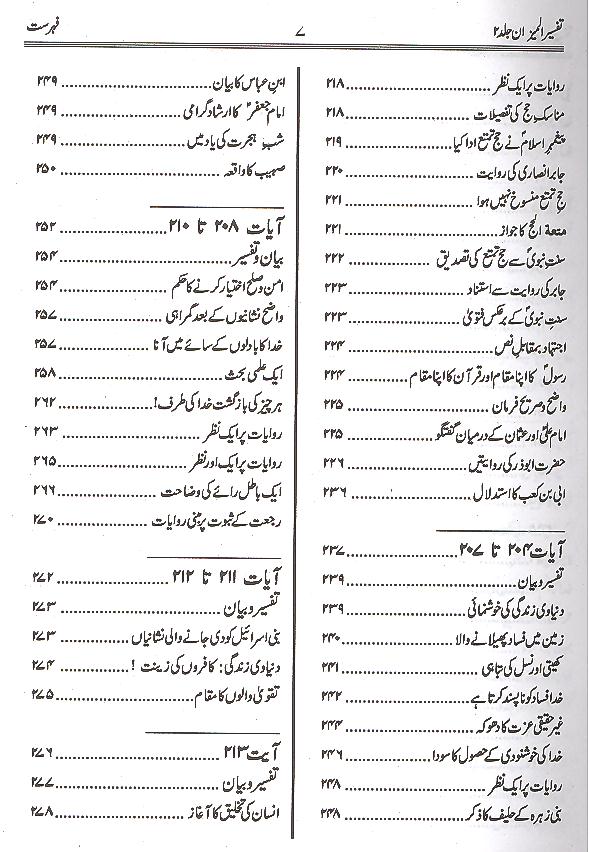 تفسیر المیزان جلد ۲ ۷ فہرست
روایات پر ایک نظر ........ ۲۱۸
مناسکِ حج کی تفصیلات ........ ۲۱۸
پیغمبرِ اسلامؐ نے حج تمتع ادا کیا ........ ۲۱۹
جابر انصاری کی روایت ........ ۲۲۰
حجِ تمتع منسوخ نہیں ہوا ........ ۲۲۱
متعۃ الحج کا جواز ........ ۲۲۱
سنتِ نبویؐ سے حج تمتع کی تصدیق ........ ۲۲۲
جابر کی روایت سے استناد ........ ۲۲۳
سنتِ نبویؐ کے برعکس فتویٰ ........ ۲۲۳
اجتہاد بمقابلِ نص ........ ۲۲۴
رسولؐ کا اپنا مقام اور قرآن کا اپنا مقام ........ ۲۲۴
واضح و صریح فرمان ........ ۲۲۵
امام علیؑ اور عثمان کے درمیان گفتگو ........ ۲۲۵
حضرت ابوذر کی روایتیں ........ ۲۲۶
ابی بن کعب کا استدلال ........ ۲۳۶
آیات ۲۰۴ تا ۲۰۷ ........ ۲۳۷
تفسیر و بیان ........ ۲۳۹
دنیاوی زندگی کی خوشنمائی ........ ۲۳۹
زمین میں فساد پھیلانے والا ........ ۲۴۰
کھیتی اور نسل کی تباہی ........ ۲۴۱
خدا فساد کو ناپسند کرتا ہے ........ ۲۴۲
غیر حقیقی عزت کا دھوکہ ........ ۲۴۴
خدا کی خوشنودی کے حصول کا سودا ........ ۲۴۶
روایات پر ایک نظر ........ ۲۴۸
بنی زہرہ کے حلیف کا ذکر ........ ۲۴۸
ابنِ عباس کا بیان ........ ۲۴۹
امام جعفرؑ کا ارشادِ گرامی ........ ۲۴۹
شبِ ہجرت کی یاد میں ........ ۲۴۹
صہیب کا واقعہ ........ ۲۵۰
آیات ۲۰۸ تا ۲۱۰ ........ ۲۵۲
بیان و تفسیر ........ ۲۵۴
امن و صلح اختیار کرنے کا حکم ........ ۲۵۴
واضح نشانیوں کے بعد گمراہی ........ ۲۵۷
خدا کا بادلوں کے سائے میں آنا ........ ۲۵۷
ایک علمی بحث ........ ۲۵۸
ہر چیز کی بازگشت خدا کی طرف! ........ ۲۶۲
روایات پر ایک نظر ........ ۲۶۳
روایات پر ایک اور نظر ........ ۲۶۵
ایک باطل رائے کی وضاحت ........ ۲۶۶
رجعت کے ثبوت پر مبنی روایات ........ ۲۷۰
آیات ۲۱۱ تا ۲۱۲ ........ ۲۷۲
تفسیر و بیان ........ ۲۷۳
بنی اسرائیل کو دی جانے والی نشانیاں ........ ۲۷۳
دنیاوی زندگی: کافروں کی زینت ! ........ ۲۷۴
تقویٰ والوں کا مقام ........ ۲۷۵
آیت ۲۱۳ ........ ۲۷۶
تفسیر و بیان ........ ۲۷۷
انسان کی تخلیق کا آغاز ........ ۲۷۸